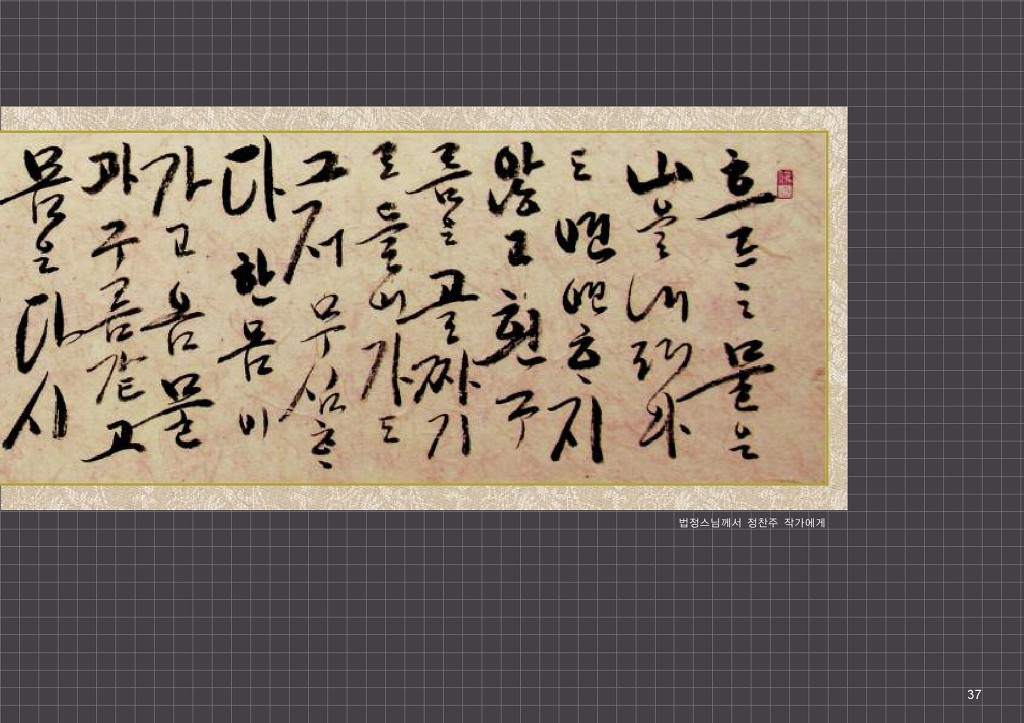 흐르는 물은
山을 내려와
도 연연하지
않고 흰 구
름은 골짜기
로 들어가도
그저 무심하
다 한 몸이
가고 옴 물
과 구름 같고
몸은 다시
법정스님께서 정찬주 작가에게
37